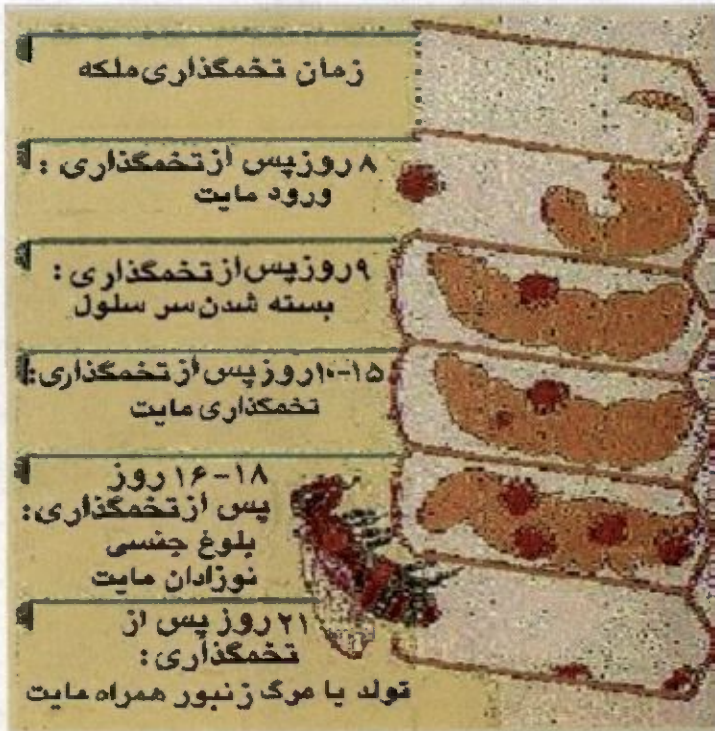 زمان تخمگذاری ملکه
۸ روز پس از تخمگذاری :
ورود مایت
۹ روز پس از تخمگذاری :
بسته شدن سر سلول
۱۰-۱۵ روز پس از تخمگذاری:
تخمگذاری مایت
۱۶-۱۸ روز
پس از تخمگذاری:
بلوغ جنسی
نوزادان مایت
۲۱ روز پس از
تخمگذاری:
تولد یا مرگ زنبور همراه مایت